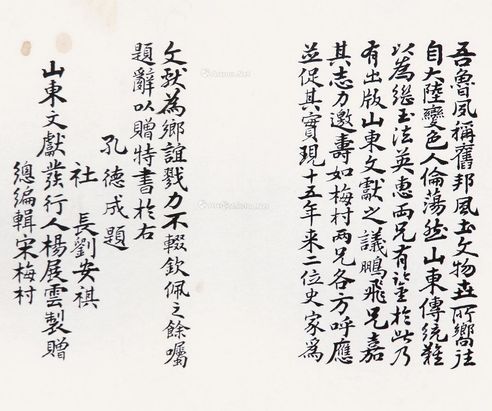 吾魯夙稱舊邦風土文物世所嚮往
自大陸變色人倫蕩然山東傳統難
以為繼玉法英惠兩兄有鑒於此乃
有出版山東文獻之議鵬飛兄嘉
其志力邀壽如梅村兩兄各方呼應
並促其實現十五年來二位史家為
文獻為鄉誼戮力不輟欽佩之餘囑
題辭以贈特書於右
孔德成題
社長劉安祺
山東文獻發行人楊展雲製贈
總編輯宋梅村